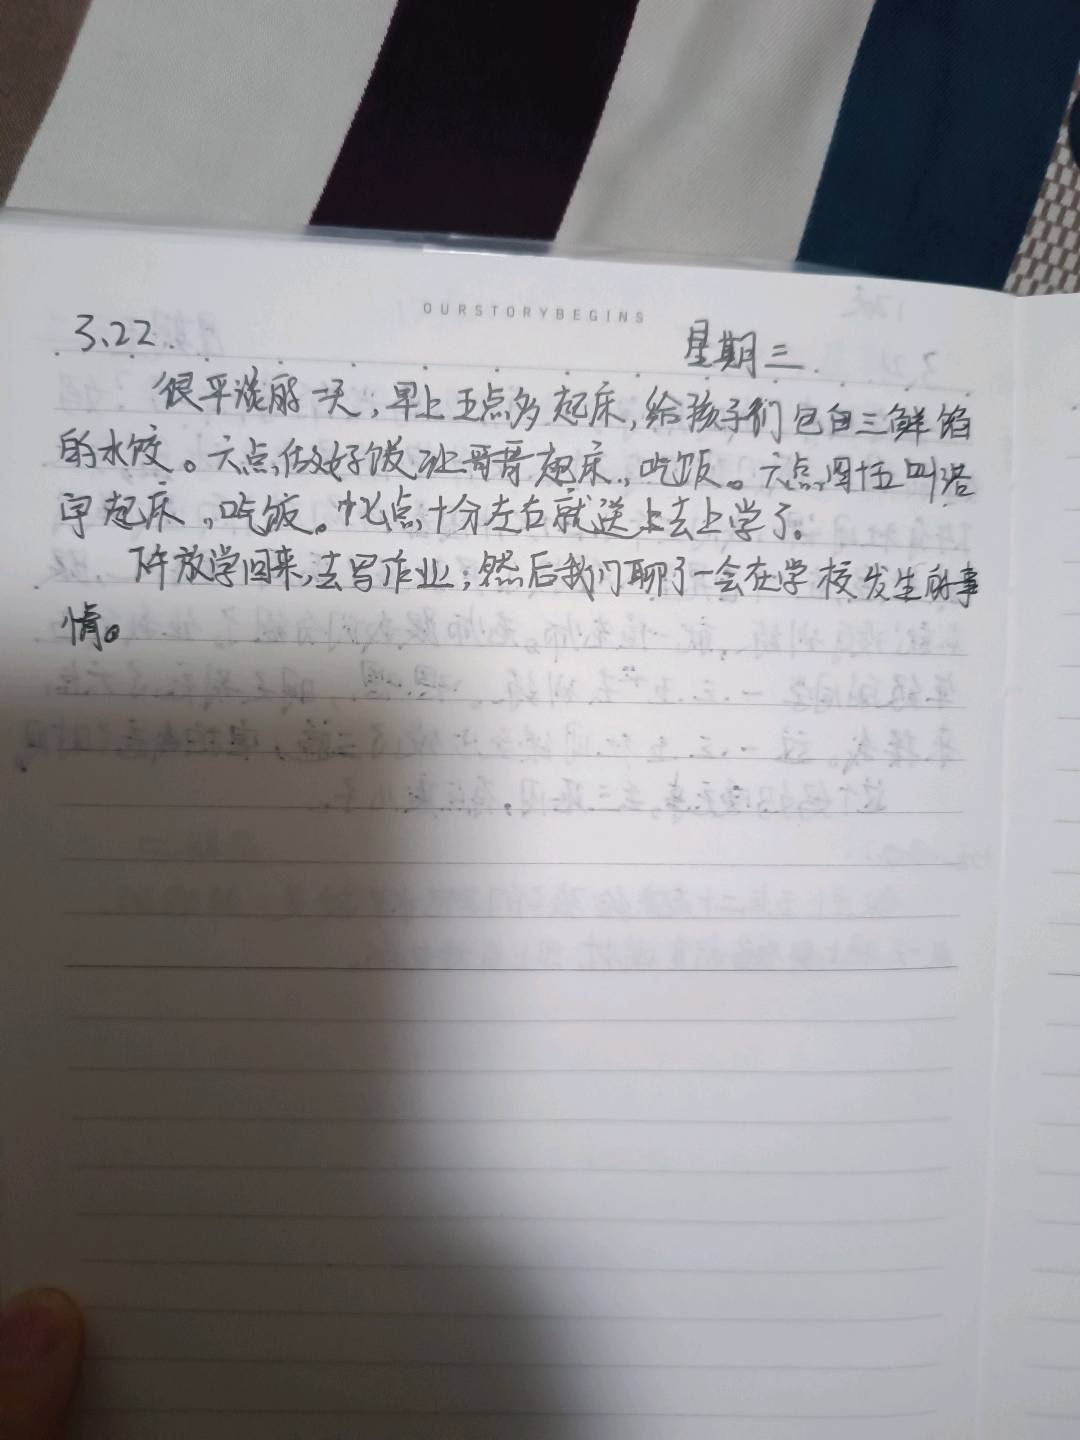 OURSTORYBEGINS
3.22. 星期三.
很平淡的一天,早上五点多起床,给孩子们包白三鲜馅
的水饺。六点做好饭让哥哥起床,吃饭。六点四十五叫
起床,吃饭。七点十分左右就送上去上学了。
下午放学回来,去写作业;然后我们聊了一会在学校发生的事
情。